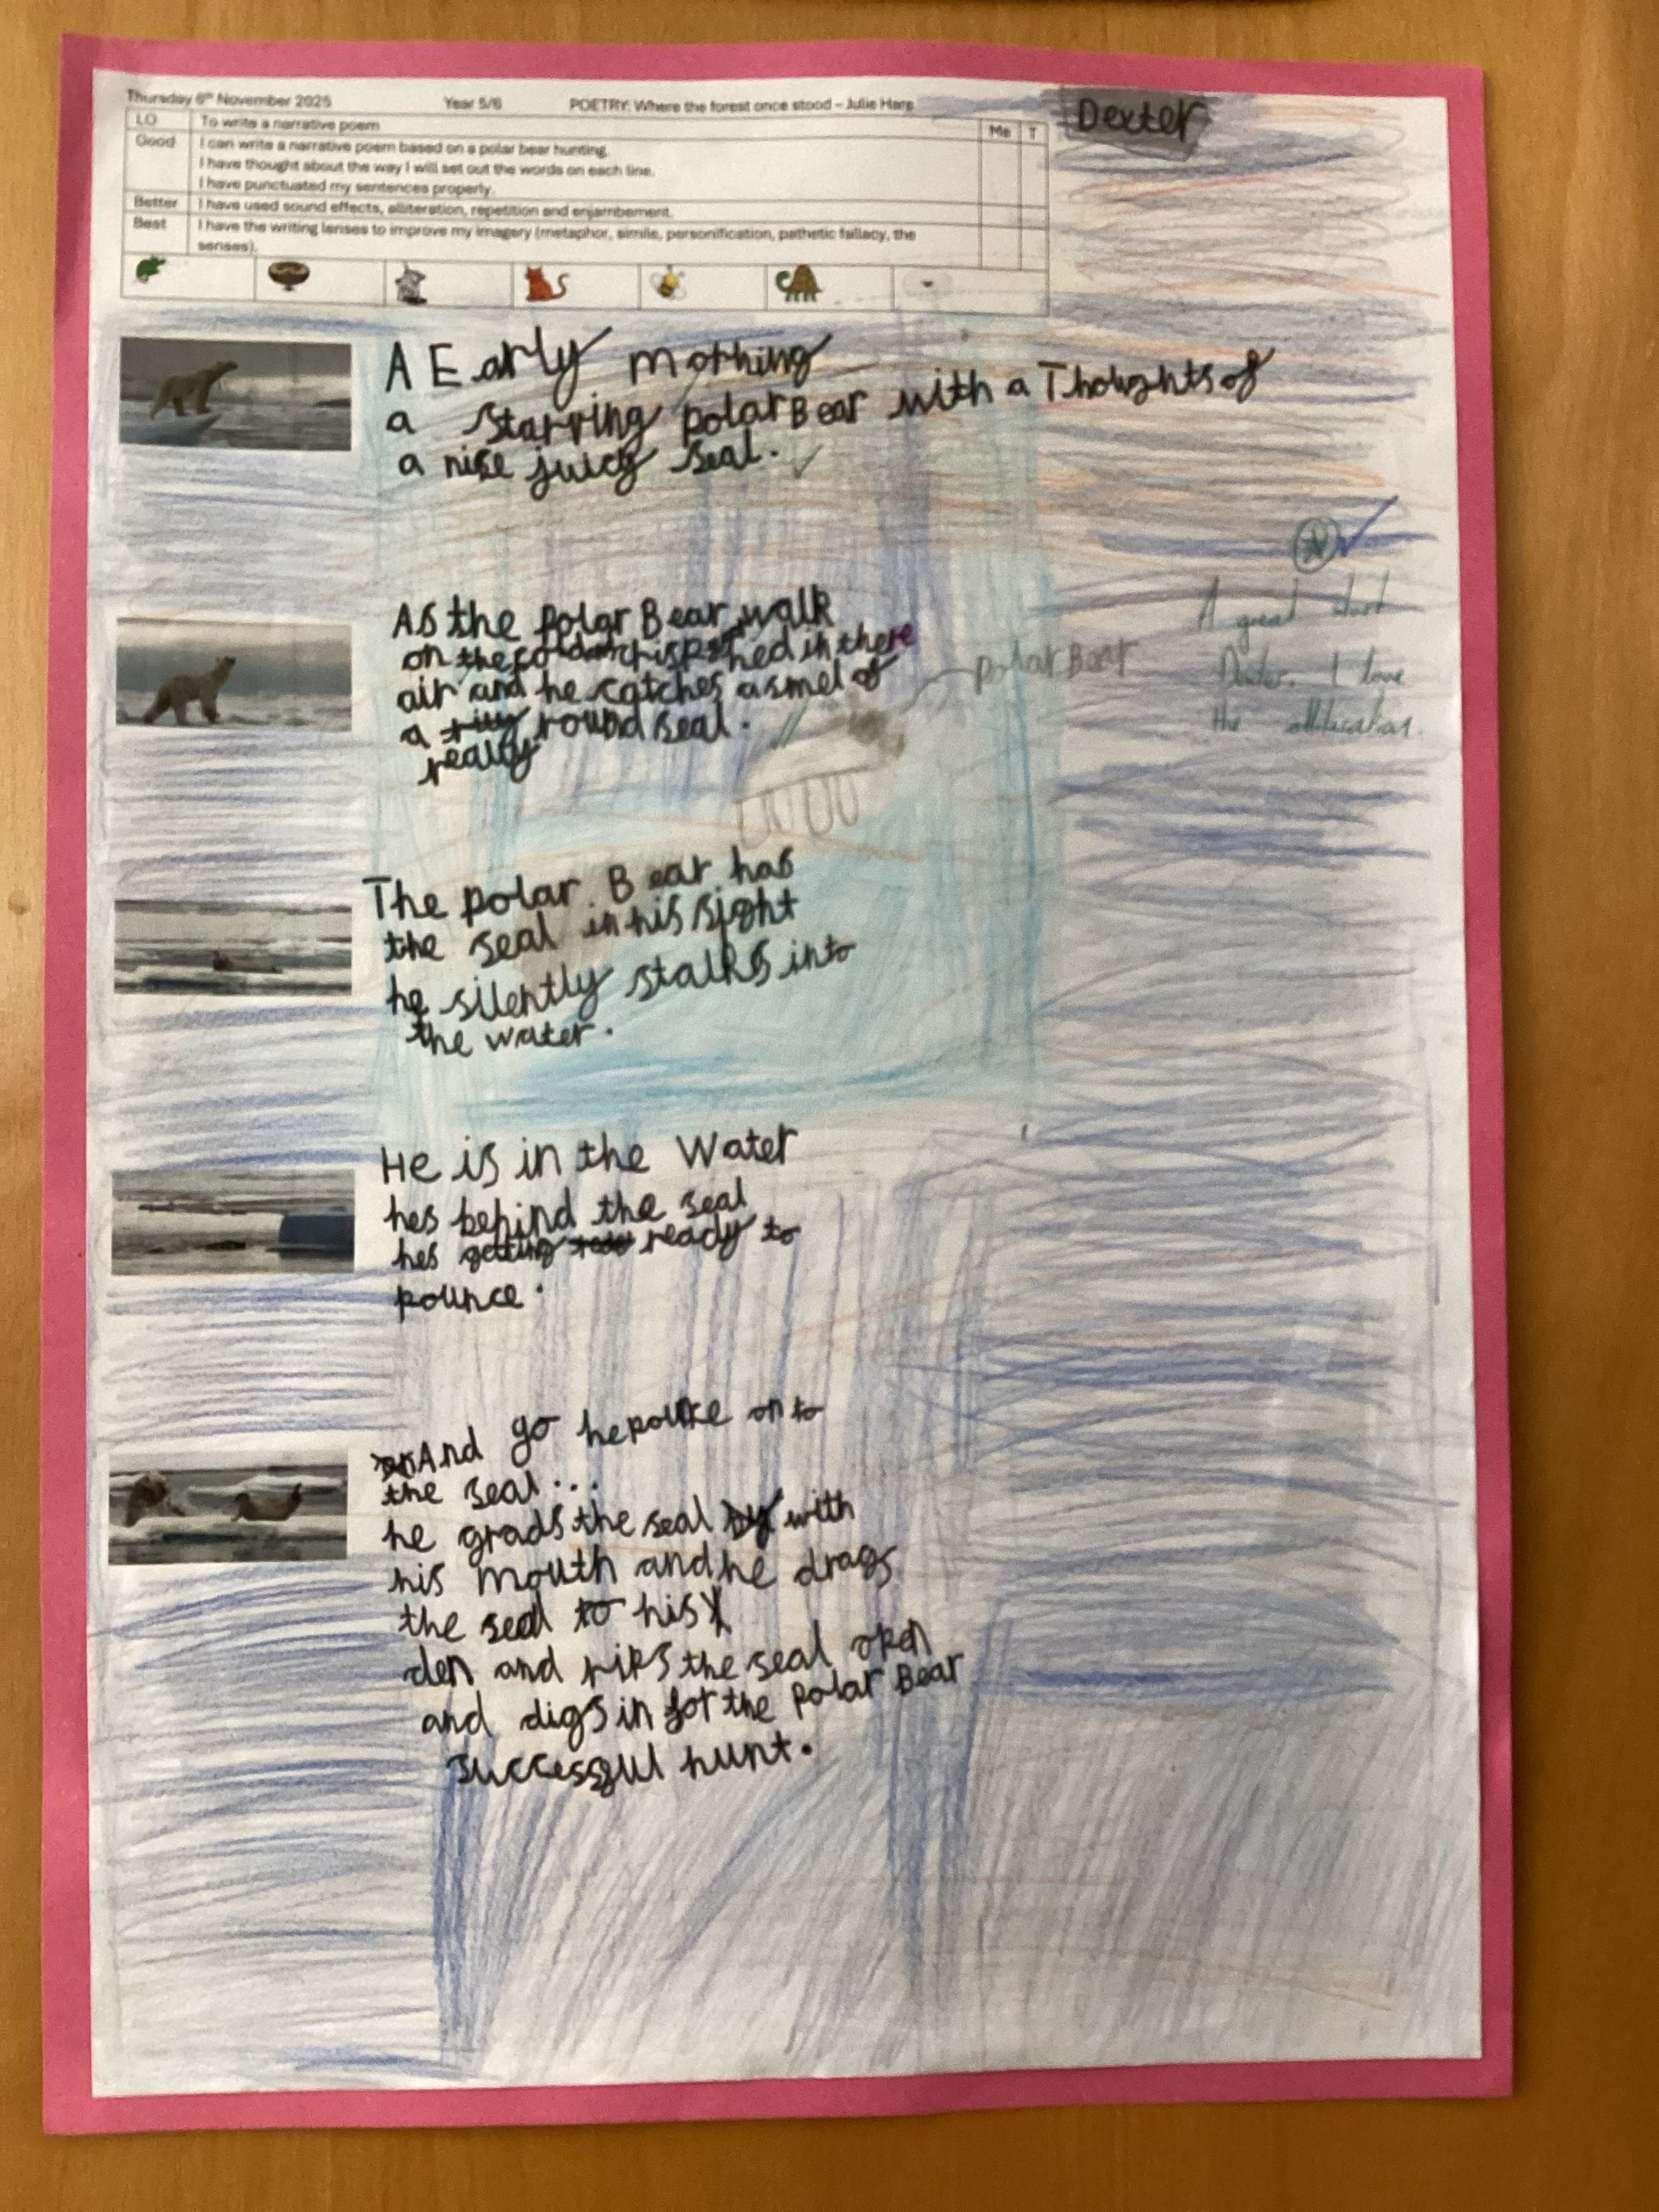 Thursday 6th November 2025 Year 5/6 POETRY: Where the forest once stood – Julie Hare
Dexter
LO To write a narrative poem Me T
Good I can write a narrative poem based on a polar bear hunting.
I have thought about the way I will set out the words on each line.
I have punctuated my sentences properly.
Better I have used sound effects, alliteration, repetition and enjambement.
Best I have the writing lenses to improve my imagery (metaphor, simile, personification, pathetic fallacy, the
senses).
A Early morning
a starving polar Bear with a Thoughts of
a nise juicy seal.
As the polar Bear walk
on the cold in there
air and he catches a smel of
a round seal.
really
polar Bear
A great start
Dexter. I love
the alliteration.
The polar Bear has
the seal in his sight
he silently stalks into
the water.
He is in the Water
hes behind the seal
hes getting ready to
pounce.
And go he pounce on to
the seal...
he grads the seal with
his mouth and he drags
the seal to his
den and rips the seal open
and digs in for the polar Bear
successful hunt.